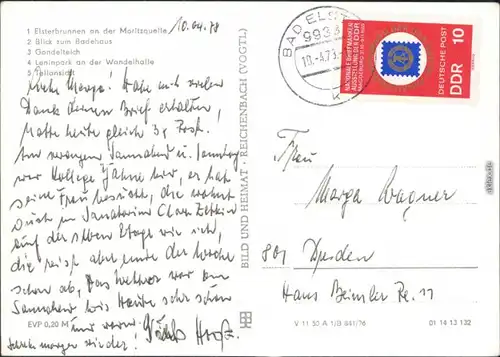 1 Elsterbrunnen an der Moritzquelle
2 Blick zum Badehaus
3 Gondelteich
4 Leninpark an der Wandelhalle
5 Teilansicht
10.04.78
Liebe Marga! Habe mit vielem
Dank deinen Brief erhalten,
hatte heute gleich 3x Post.
Am vorigen Sonnabend u. Sonntag
war Kollege Jähne hier, er hat
seine Frau besucht, die wohnt
auch im Sanatorium Clara Zetkin
auf der selben Etage wie ich,
die reist aber ende der Woche
schon ab, Das Wetter war am
Sonnabend bis Heute sehr schön
und warm.
EVP 0,20 M
BILD UND HEIMAT · REICHENBACH (VOGTL)
BAD ELSTER
993
10.-4.78
k
NATIONALE BRIEFMARKEN
AUSSTELLUNG DER DDR
DEUTSCHE POST
DDR
10
Frau
Marga Wagner
801 Dresden
Hans Beimler Str. 11
V 11 50 A 1/B 441/76
01 14 13 132